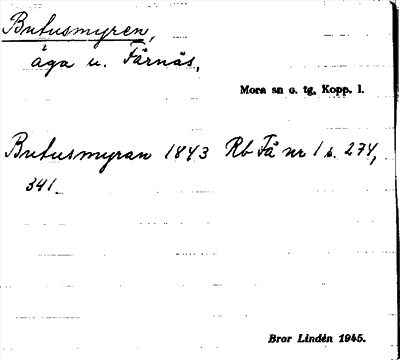 Butusmyren,
äga u. Färnäs,
Mora sn o. tg, Kopp. l.
Butusmyran 1843 Rb Få nr 1 s. 274,
341.
Bror Lindén 1945.